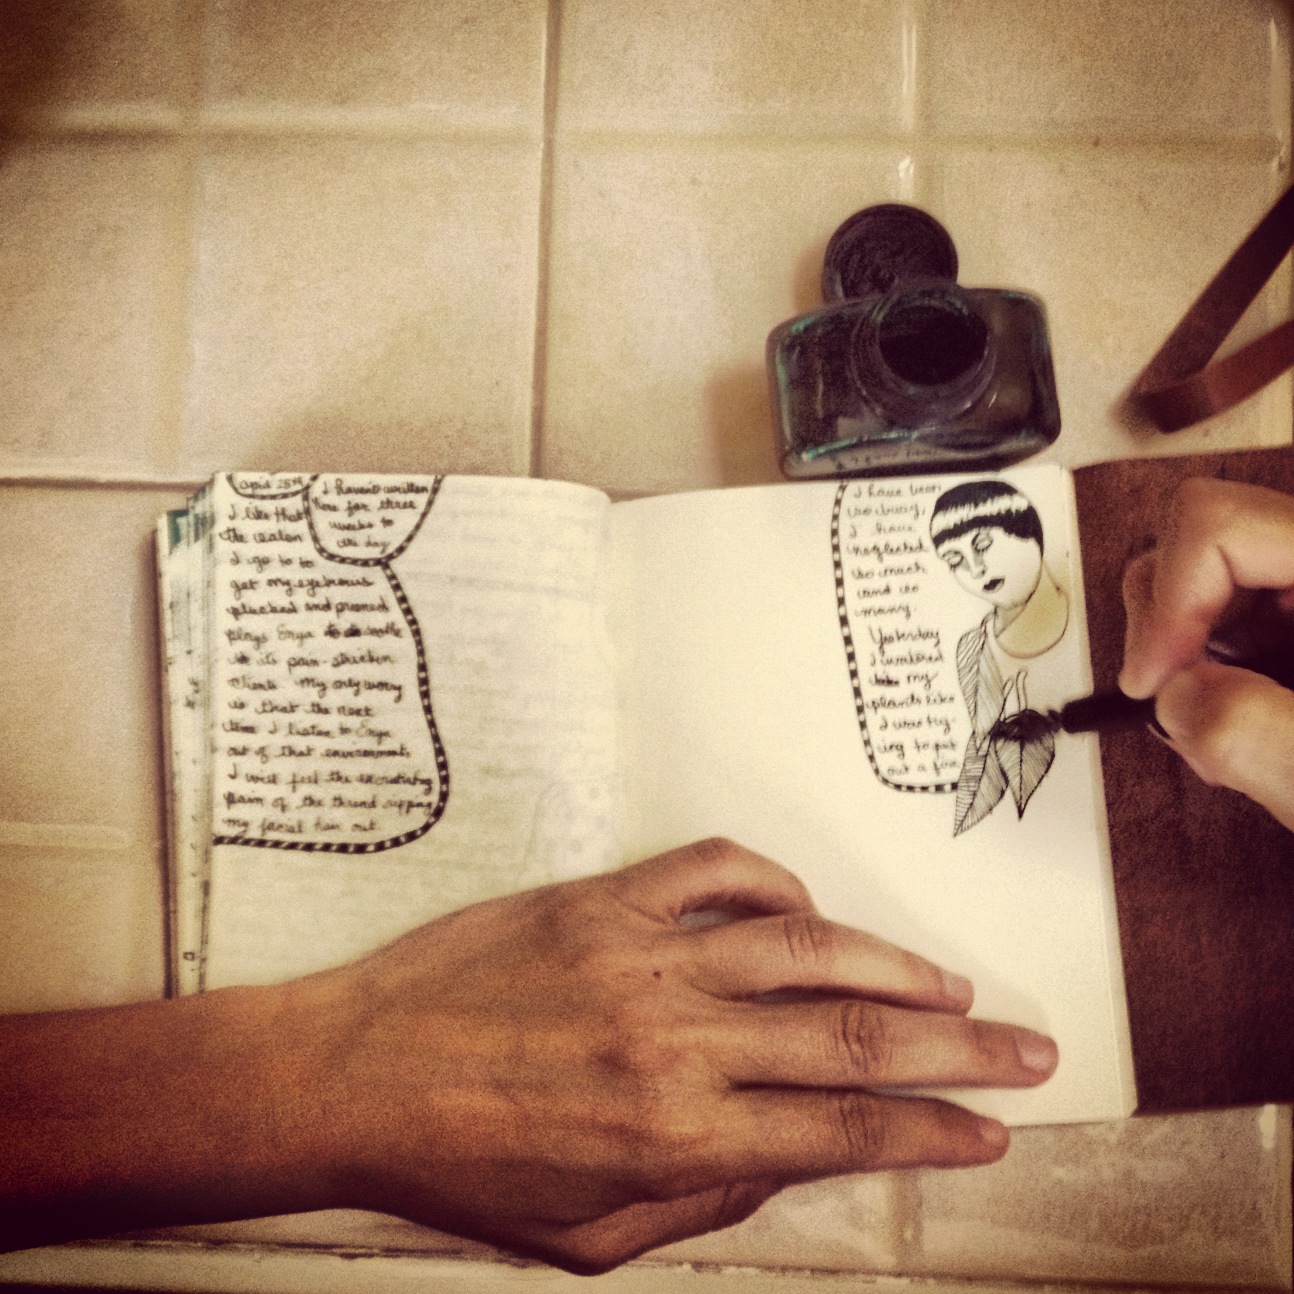 April 25th
I haven't written
here for three
weeks to
the day
I like that
the salon
I go to to
get my eyebrows
plucked and preened
plays Enya to soothe
its pain-stricken
clients. My only worry
is that the next
time I listen to Enya
out of that environment,
I will feel the excruciating
pain of the thread ripping
my facial hair out.
I have been
so busy,
I have
neglected
so much
and so
many.
Yesterday
I watered
my
plants like
I was try-
ing to put
out a fire